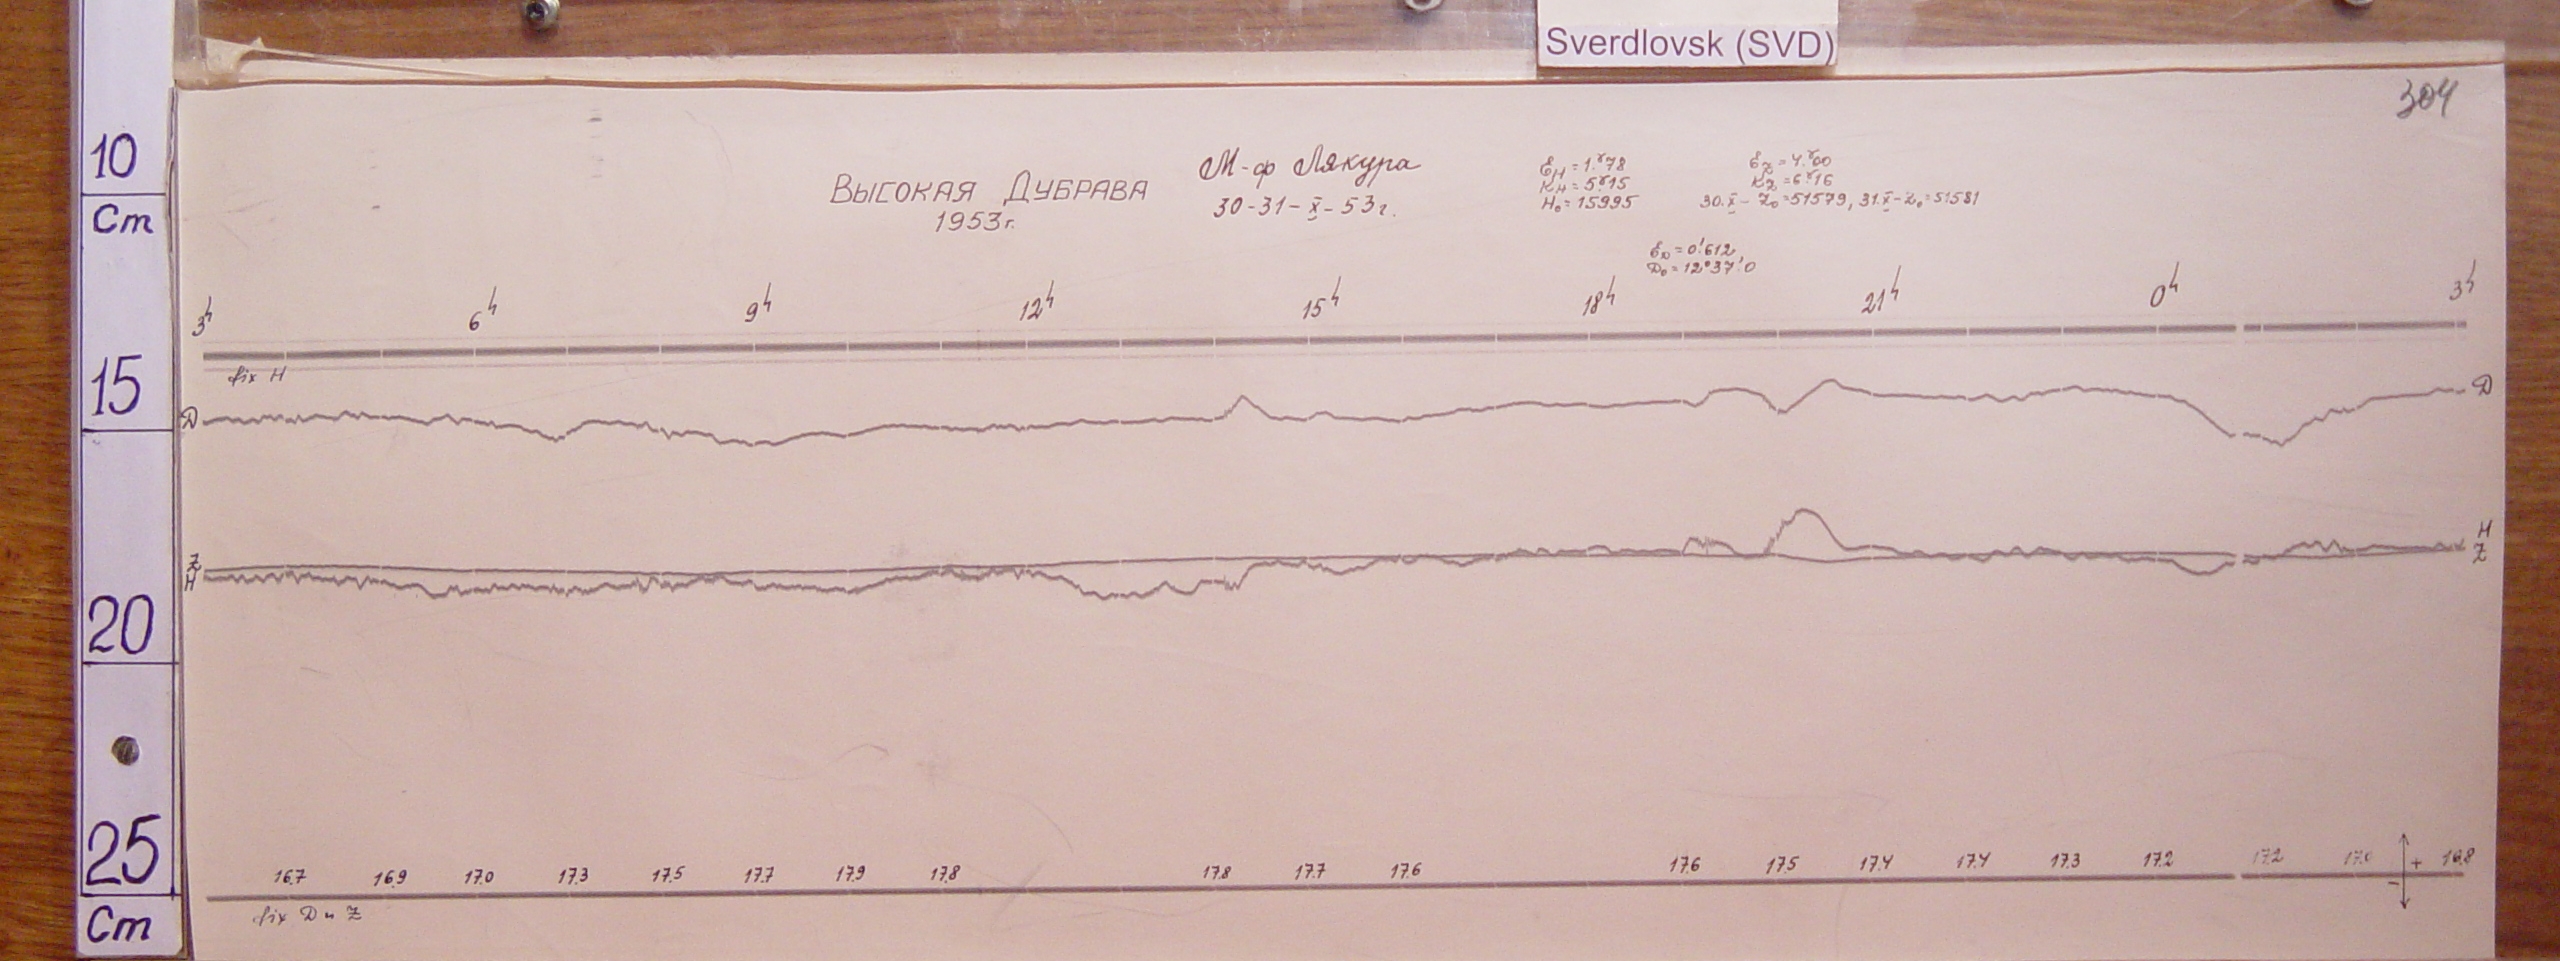 Sverdlovsk (SVD)
304
10
Cm
15
20
25
Cm
Высокая Дубрава
1953г.
М-ф Лякура
30-31-X-53г.
εH = 1.γ78
KH = 5.γ15
H₀ = 15995
εZ = 4.γ00
KZ = 6.γ16
30.X - Z₀ = 51579, 31.X - Z₀ = 51581
εD = 0.'612
D₀ = 12°37.'0
3h 6h 9h 12h 15h 18h 21h 0h 3h
fix H
D D
Z H
H Z
16.7 16.9 17.0 17.3 17.5 17.7 17.9 17.8 17.8 17.7 17.6 17.6 17.5 17.4 17.4 17.3 17.2 17.2 17.0 + 16.8
-
fix D и Z